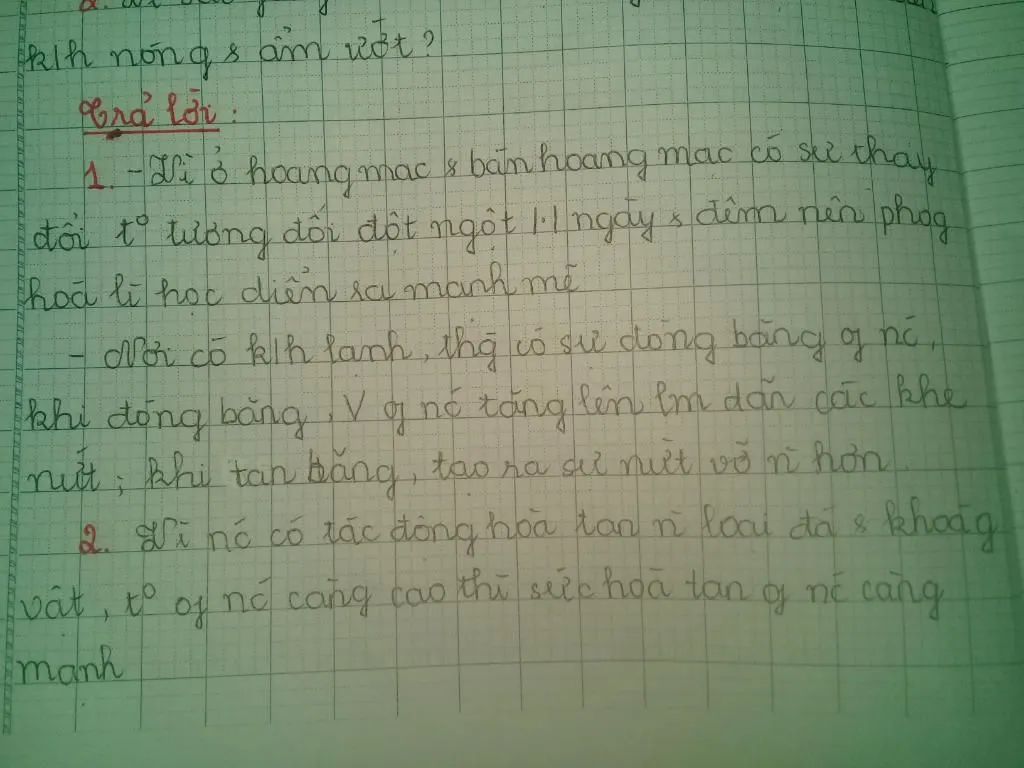 klh nóng & ẩm ướt?
Trả lời:
1. - Vì ở hoang mạc & bán hoang mạc có sự thay
đổi t° tương đối đột ngột 1.1 ngày & đêm nên phog
hoá lí học diễn ra mạnh mẽ
- Nơi có klh lạnh, thg có sự đóng băng of nc,
khi đóng băng, V of nc tăng lên lm dãn các khe
nứt; khi tan băng, tạo ra sự nứt vỡ n` hơn.
2. Vì nc có tác động hoà tan n` loại đá & khoág
vật, t° of nc càng cao thì sức hoà tan of nc càng
mạnh